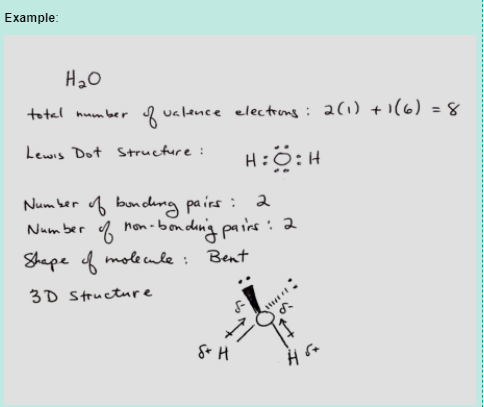 Example:
H₂O
total number of valence electrons : 2(1) + 1(6) = 8
Lewis Dot Structure :
H : Ö : H
Number of bonding pairs : 2
Number of non-bonding pairs : 2
Shape of molecule : Bent
3D Structure
δ- δ-
δ+ H H δ+